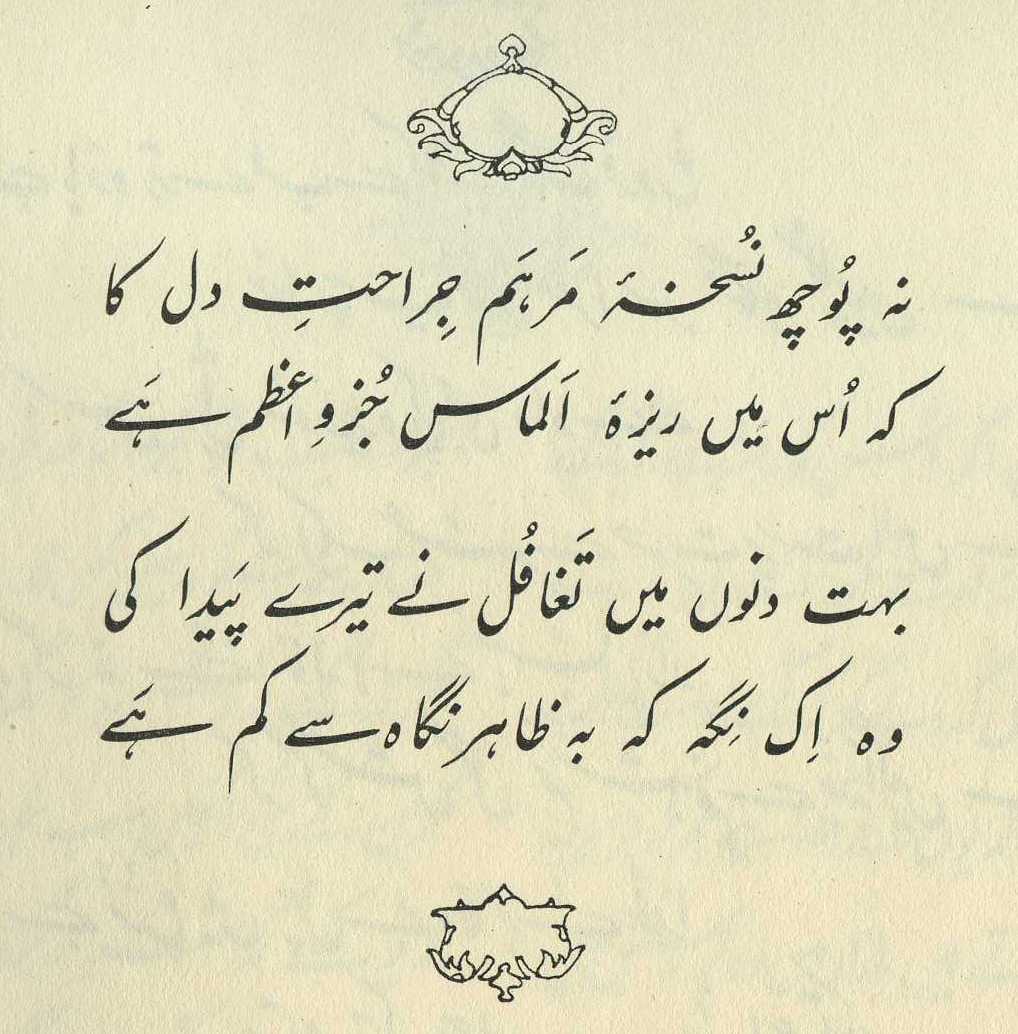 نہ پُوچھ نُسخۂ مَرہَم جِراحتِ دل کا
کہ اُس میں ریزۂ اَلماس جُزوِ اعظم ہَے
بہت دنوں میں تَغافُل نے تیرے پَیدا کی
وہ اِک نِگہ کہ بہ ظاہر نگاہ سے کم ہَے